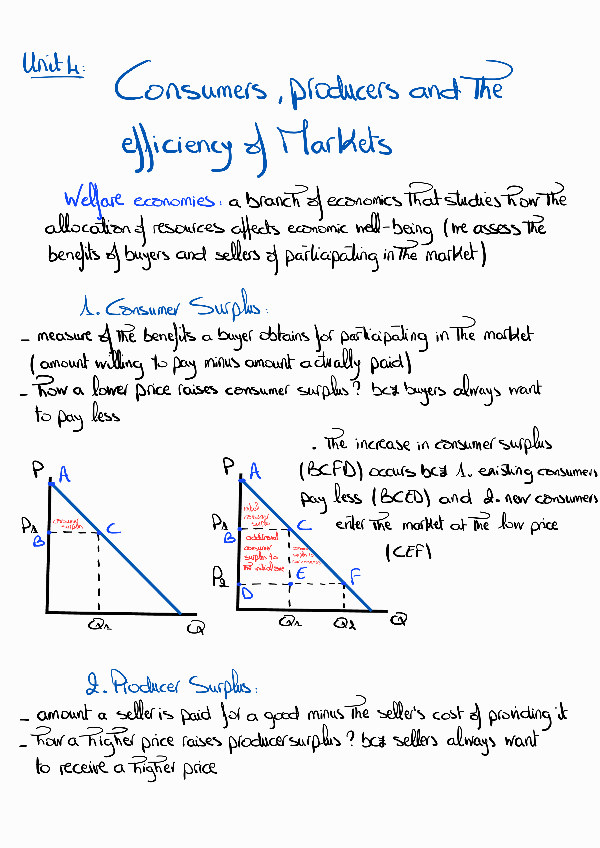 Unit 4:
Consumers, producers and the
efficiency of Markets
Welfare economies: a branch of economics that studies how the
allocation of resources affects economic well-being (we assess the
benefits of buyers and sellers of participating in the market)
1. Consumer Surplus:
- measure of the benefits a buyer obtains for participating in the market
(amount willing to pay minus amount actually paid)
- how a lower price raises consumer surplus? bcz buyers always want
to pay less
. The increase in consumer surplus
(BCFD) occurs bcz 1. existing consumers
pay less (BCED) and 2. new consumers
enter the market at the low price
(CEF)
P
A
P1
consumer
surplus
B
C
Q1
Q
P
A
initial
consumer
surplus
P1
B
C
additional
consumer
surplus to
the initial
P2
D
E
F
Q1
Q2
Q
2. Producer Surplus:
- amount a seller is paid for a good minus the seller's cost of providing it
- how a higher price raises producer surplus? bcz sellers always want
to receive a higher price